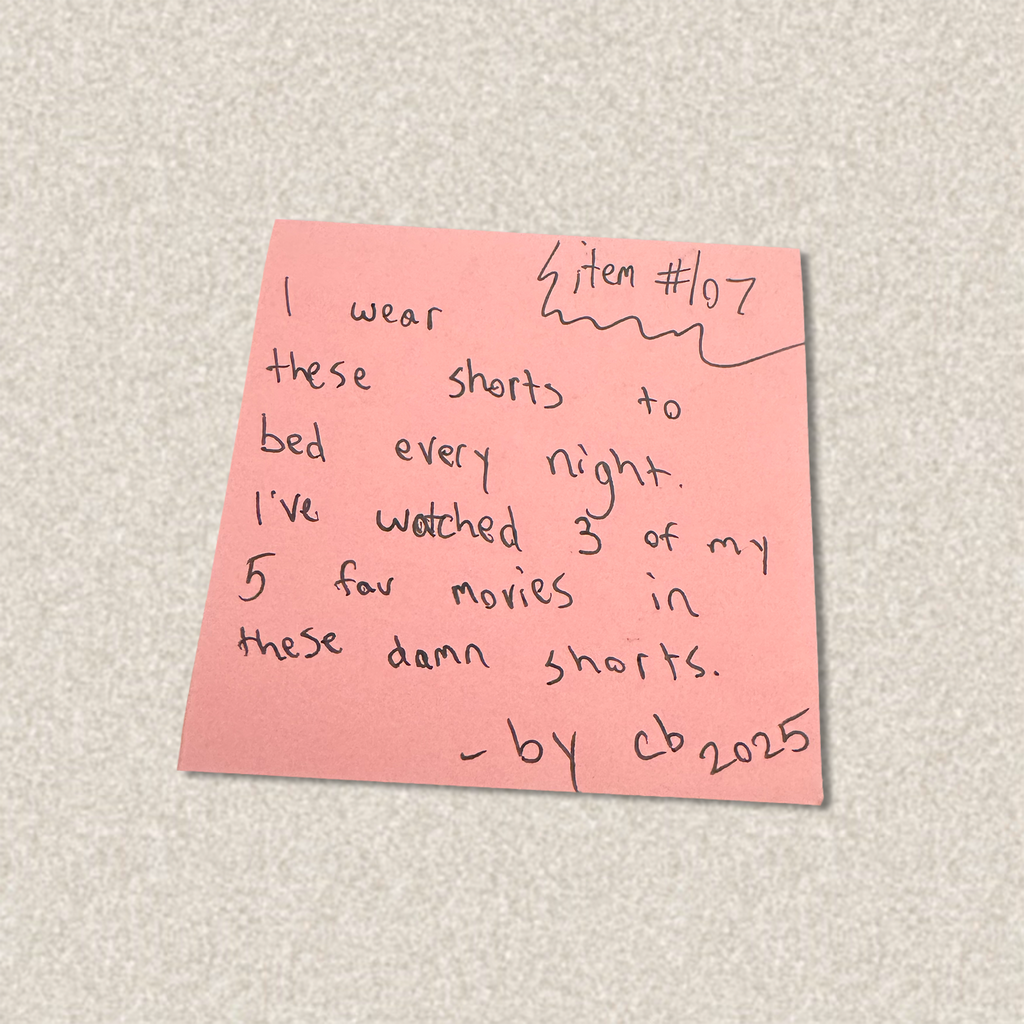 item #107
I wear
these shorts to
bed every night.
I've watched 3 of my
5 fav movies in
these damn shorts.
- by cb 2025